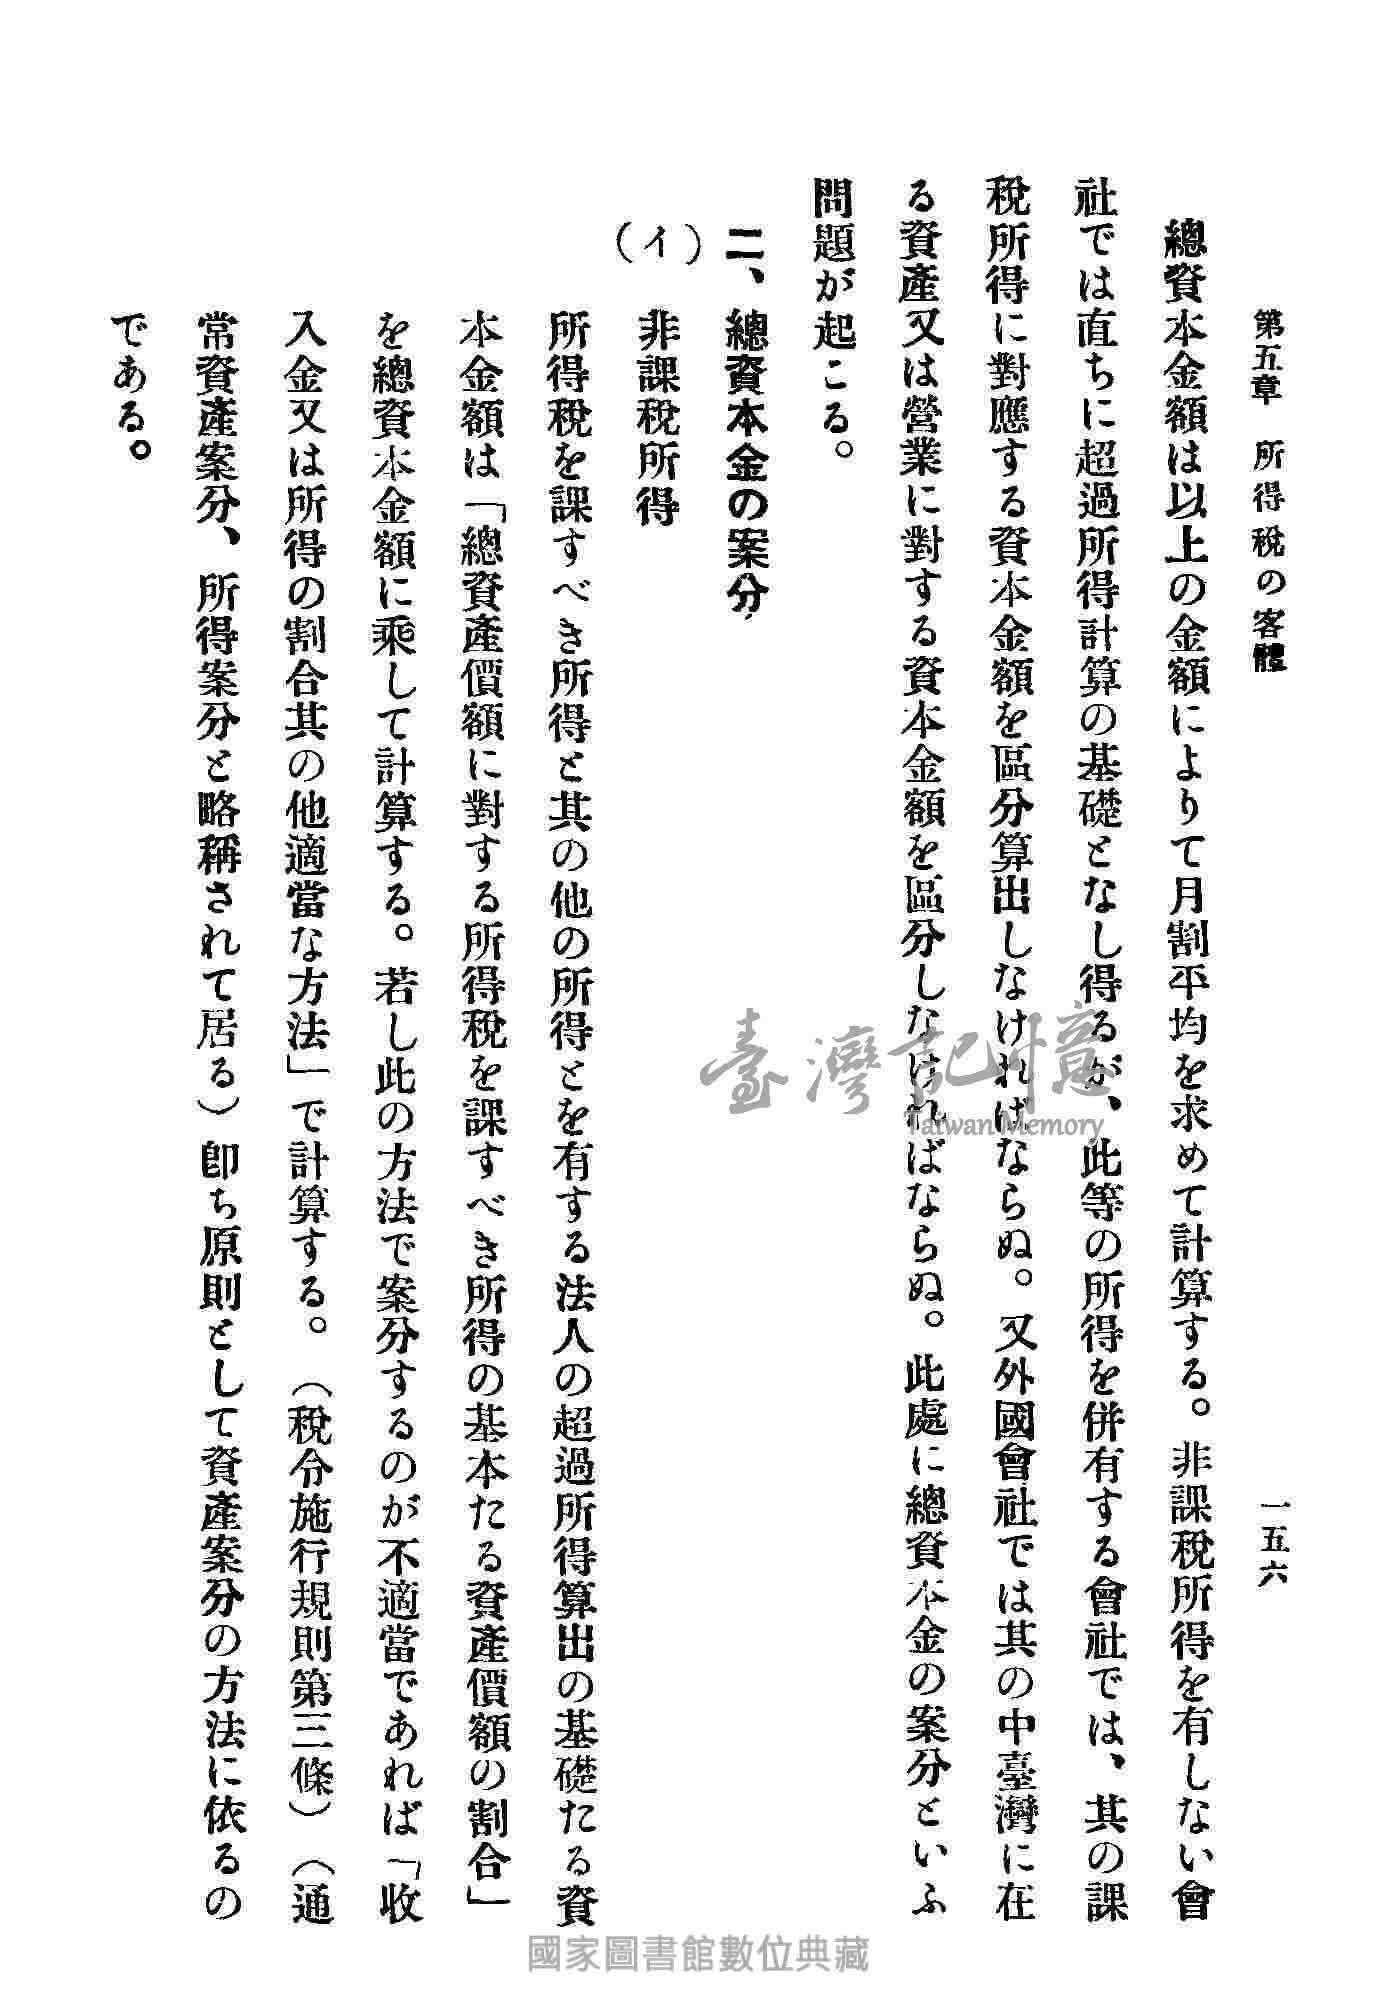 第五章　所得稅の客體
一五六
總資本金額は以上の金額によりて月割平均を求めて計算する。非課稅所得を有しない會
社では直ちに超過所得計算の基礎となし得るが、此等の所得を併有する會社では、其の課
稅所得に對應する資本金額を區分算出しなければならぬ。又外國會社では其の中臺灣に在
る資產又は營業に對する資本金額を區分しなければならぬ。此處に總資本金の案分といふ
問題が起こる。
二、總資本金の案分
（イ）　非課稅所得
所得稅を課すべき所得と其の他の所得とを有する法人の超過所得算出の基礎たる資
本金額は「總資產價額に對する所得稅を課すべき所得の基本たる資產價額の割合」
を總資本金額に乘して計算する。若し此の方法で案分するのが不適當であれば「收
入金又は所得の割合其の他適當な方法」で計算する。（稅令施行規則第三條）（通
常資產案分、所得案分と略稱されて居る）卽ち原則として資產案分の方法に依るの
である。
臺灣記憶
Taiwan Memory
國家圖書館數位典藏